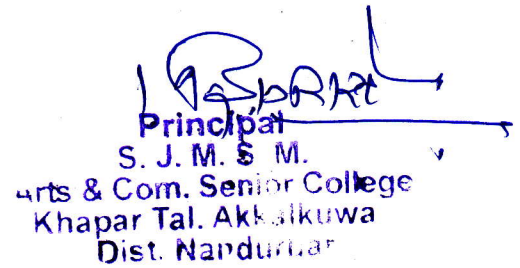 Principal
S. J. M. S M.
Arts & Com. Senior College
Khapar Tal. Akkalkuwa
Dist. Nandurbar